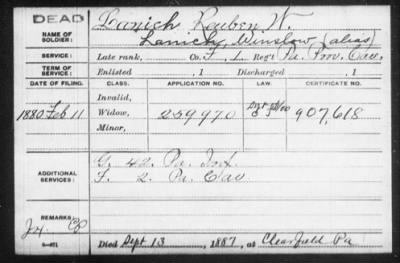 DEAD
NAME OF SOLDIER: Lanich Reuben W.
Lanich, Winslow (alias)
SERVICE: Late rank, Co. F, 1, Reg't Pa. Prov. Cav.
TERM OF SERVICE: Enlisted , 1 Discharged , 1
DATE OF FILING. CLASS. APPLICATION NO. LAW. CERTIFICATE NO.
Invalid,
1880 Feb 11 Widow, 259970 907,618
Minor,
ADDITIONAL SERVICES:
G. 42. Pa. Inf.
F. 2. Pa. Cav
REMARKS:
Died Sept 13, 1887, at Clearfield Pa